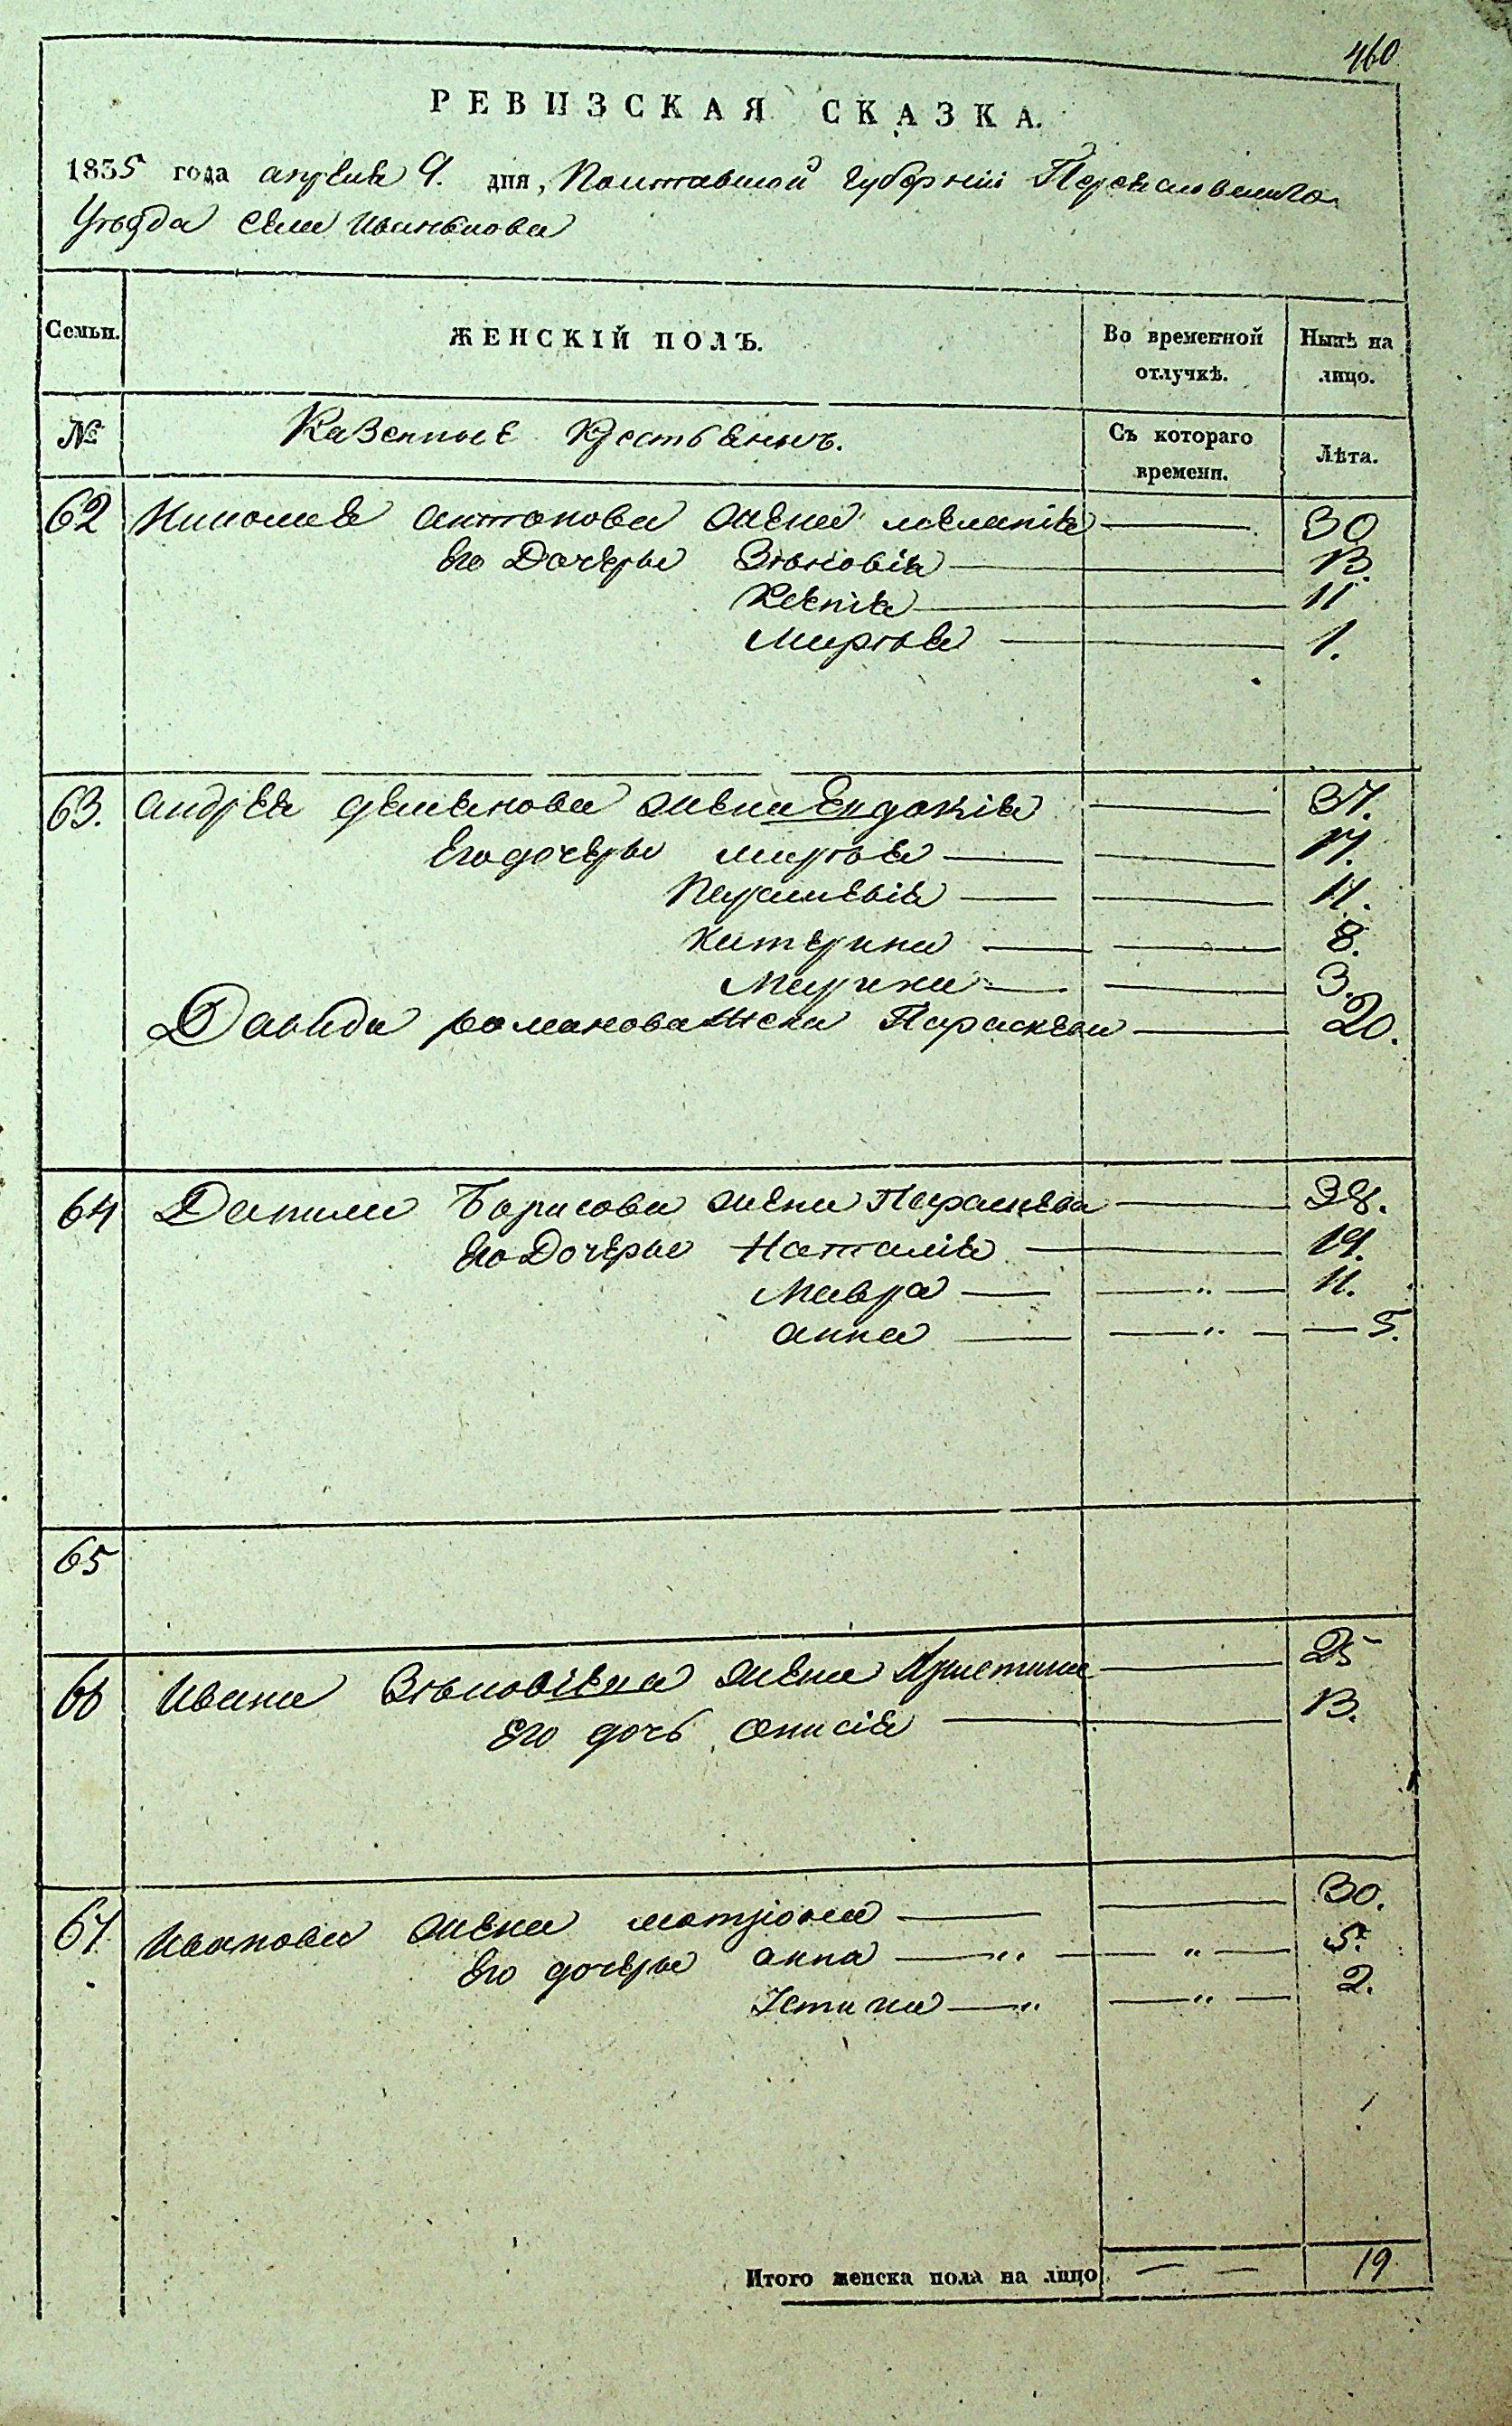 460
РЕВИЗСКАЯ СКАЗКА.
1835 года апреля 9. дня, Полтавской губернiи Переяславскаго
Уѣзда села Иванькова
Семьи. ЖЕНСКІЙ ПОЛЪ. Во временной отлучкѣ. Нынѣ на лицо.
№ Казенные крестьяне. Съ котораго времени. Лѣта.
62 Николая антонова жена меланiя 30
его Дочери Зѣновiя 13.
Ксенiя 11
Марѳа 1.
63. андрея демянова жена Евдокiя 37.
его дочери марѳа 17.
Параскевiя 11.
катерина 8.
Марина 3.
Давида романова жена Параскева 20.
64 Данила Борисова жена Параскева 38.
его Дочери Наталiя 19.
Мавра 11.
анна 5.
65
66 Ивана Зѣновіева жена Христина 25
его дочь анисiя 13.
67 Иванова жена матрiона 30.
его дочери анна 5.
Устина 2.
Итого женска пола на лицо 19